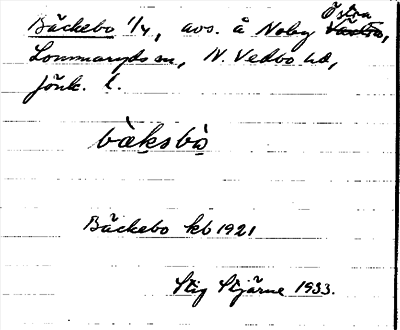 Bäckebo 1/4, avs. å Noby Östra,
Lommaryds sn, N. Vedbo hd,
Jönk. l.
bàksbò
Bäckebo kb 1921
Stig Stjärne 1933.